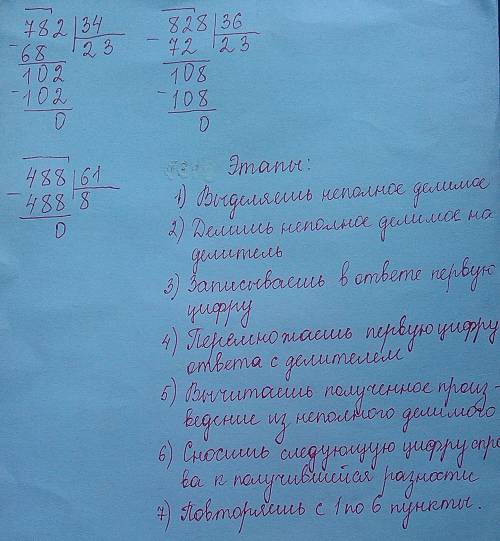 782 34
-68 23
102
-102
0
828 36
-72 23
108
-108
0
488 61
-488 8
0
Этапы:
1) Выделяешь неполное делимое
2) Делишь неполное делимое на
делитель
3) Записываешь в ответе первую
цифру
4) Перемножаешь первую цифру
ответа с делителем
5) Вычитаешь полученное произ-
ведение из неполного делимого
6) Сносишь следующую цифру спра
ва к получившейся разности
7) Повторяешь с 1 по 6 пункты.